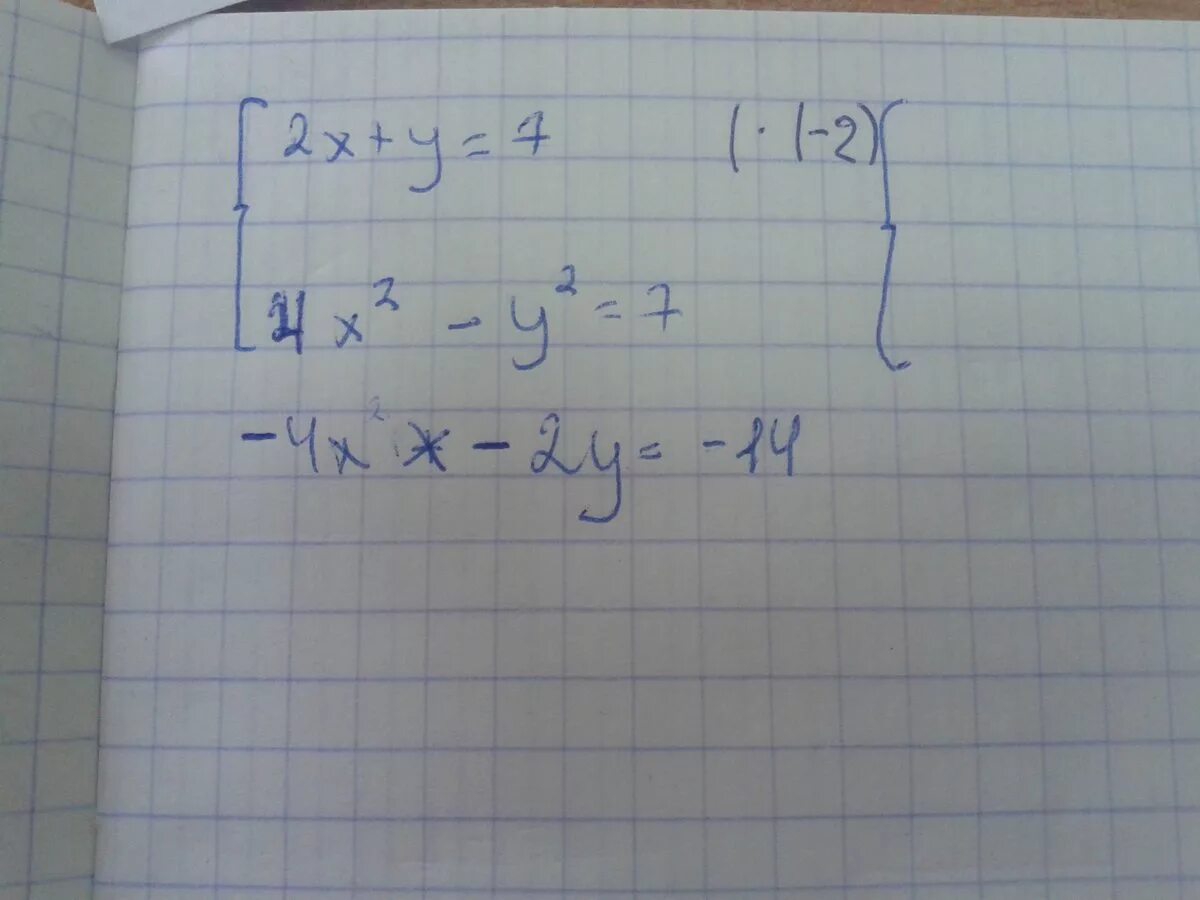 2x + y = 7 | · (-2)
4x² - y² = 7
-4x² - 2y = -14